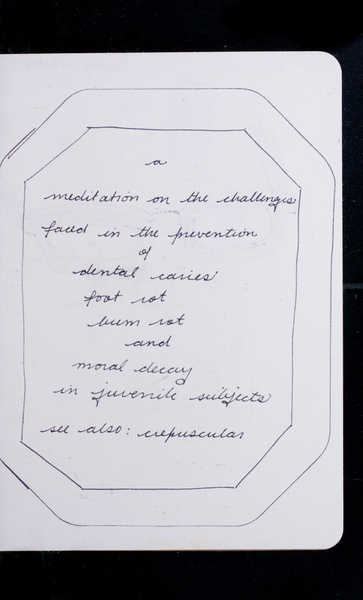 a
meditation on the challenges
faced in the prevention
of
dental caries
foot rot
bum rot
and
moral decay
in juvenile subjects
see also: crepuscular